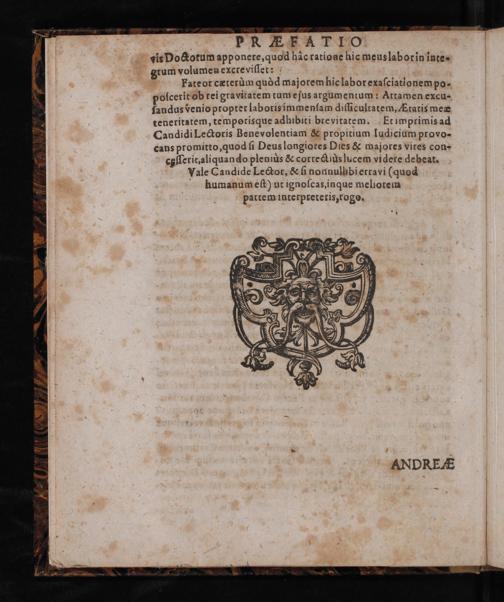 PRÆFATIO
vis Doctorum apponere, quod hâc ratione hic meus labor in inte-
grum volumen excrevisset:
Fateor cæterùm quòd majorem hic labor exasciationem po-
poscerit ob rei gravitatem tum ejus argumentum: Attamen excu-
sandus venio propter laboris immensam difficultatem, Ætatis meæ
teneritatem, temporisque adhibiti brevitatem. Et imprimis ad
Candidi Lectoris Benevolentiam & propitium Iudicium provo-
cans promitto, quod si Deus longiores Dies & majores vires con-
cesserit, aliquando pleniùs & correctiùs lucem videre debeat.
Vale Candide Lector, & si nonnullibi erravi (quod
humanum est) ut ignoscas, inque meliorem
partem interpreteris, rogo.
ANDREÆ